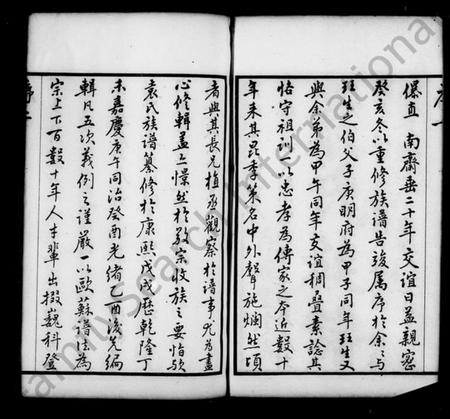 儤直南齋垂二十年交誼日益親密
癸亥冬以重修族譜告竣属序於余余與
珏生之伯父子庚明府為甲子同年珏生又
與余弟為甲午同年交誼稠疊素諗其
恪守祖訓一以忠孝為傳家之本近數十
年来其昆季策名中外聲施爛然頃
者與其長兄植丞觀察於譜事尤為盡
心修輯益之憬然於敬宗收族之要怡歟
袁氏族譜纂修於康熙戊戌歷乾隆丁
未嘉慶庚午同治癸酉光緒乙酉後先編
輯凡五次義例之謹嚴一以歐蘇譜法為
宗上下百數十年人才輩出掇巍科登
序一
序二
Family Search International